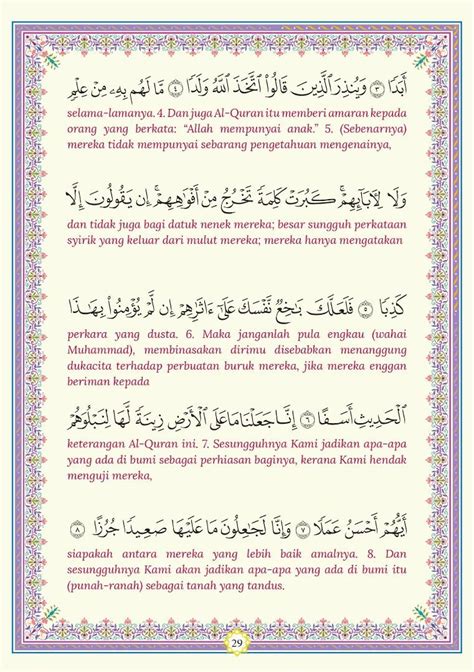 أَبَدًا ﴿٣﴾ وَيُنذِرَ ٱلَّذِينَ قَالُوا۟ ٱتَّخَذَ ٱللَّهُ وَلَدًا ﴿٤﴾ مَّا لَهُم بِهِۦ مِنْ عِلْمٍ
selama-lamanya. 4. Dan juga Al-Quran itu memberi amaran kepada
orang yang berkata: “Allah mempunyai anak.” 5. (Sebenarnya)
mereka tidak mempunyai sebarang pengetahuan mengenainya,
وَلَا لِـَٔابَآئِهِمْ ۚ كَبُرَتْ كَلِمَةً تَخْرُجُ مِنْ أَفْوَٰهِهِمْ ۚ إِن يَقُولُونَ إِلَّا
dan tidak juga bagi datuk nenek mereka; besar sungguh perkataan
syirik yang keluar dari mulut mereka; mereka hanya mengatakan
كَذِبًا ﴿٥﴾ فَلَعَلَّكَ بَـٰخِعٌ نَّفْسَكَ عَلَىٰٓ ءَاثَـٰرِهِمْ إِن لَّمْ يُؤْمِنُوا۟ بِهَـٰذَا
perkara yang dusta. 6. Maka janganlah pula engkau (wahai
Muhammad), membinasakan dirimu disebabkan menanggung
dukacita terhadap perbuatan buruk mereka, jika mereka enggan
beriman kepada
ٱلْحَدِيثِ أَسَفًا ﴿٦﴾ إِنَّا جَعَلْنَا مَا عَلَى ٱلْأَرْضِ زِينَةً لَّهَا لِنَبْلُوَهُمْ
keterangan Al-Quran ini. 7. Sesungguhnya Kami jadikan apa-apa
yang ada di bumi sebagai perhiasan baginya, kerana Kami hendak
menguji mereka,
أَيُّهُمْ أَحْسَنُ عَمَلًا ﴿٧﴾ وَإِنَّا لَجَـٰعِلُونَ مَا عَلَيْهَا صَعِيدًا جُرُزًا ﴿٨﴾
siapakah antara mereka yang lebih baik amalnya. 8. Dan
sesungguhnya Kami akan jadikan apa-apa yang ada di bumi itu
(punah-ranah) sebagai tanah yang tandus.
29